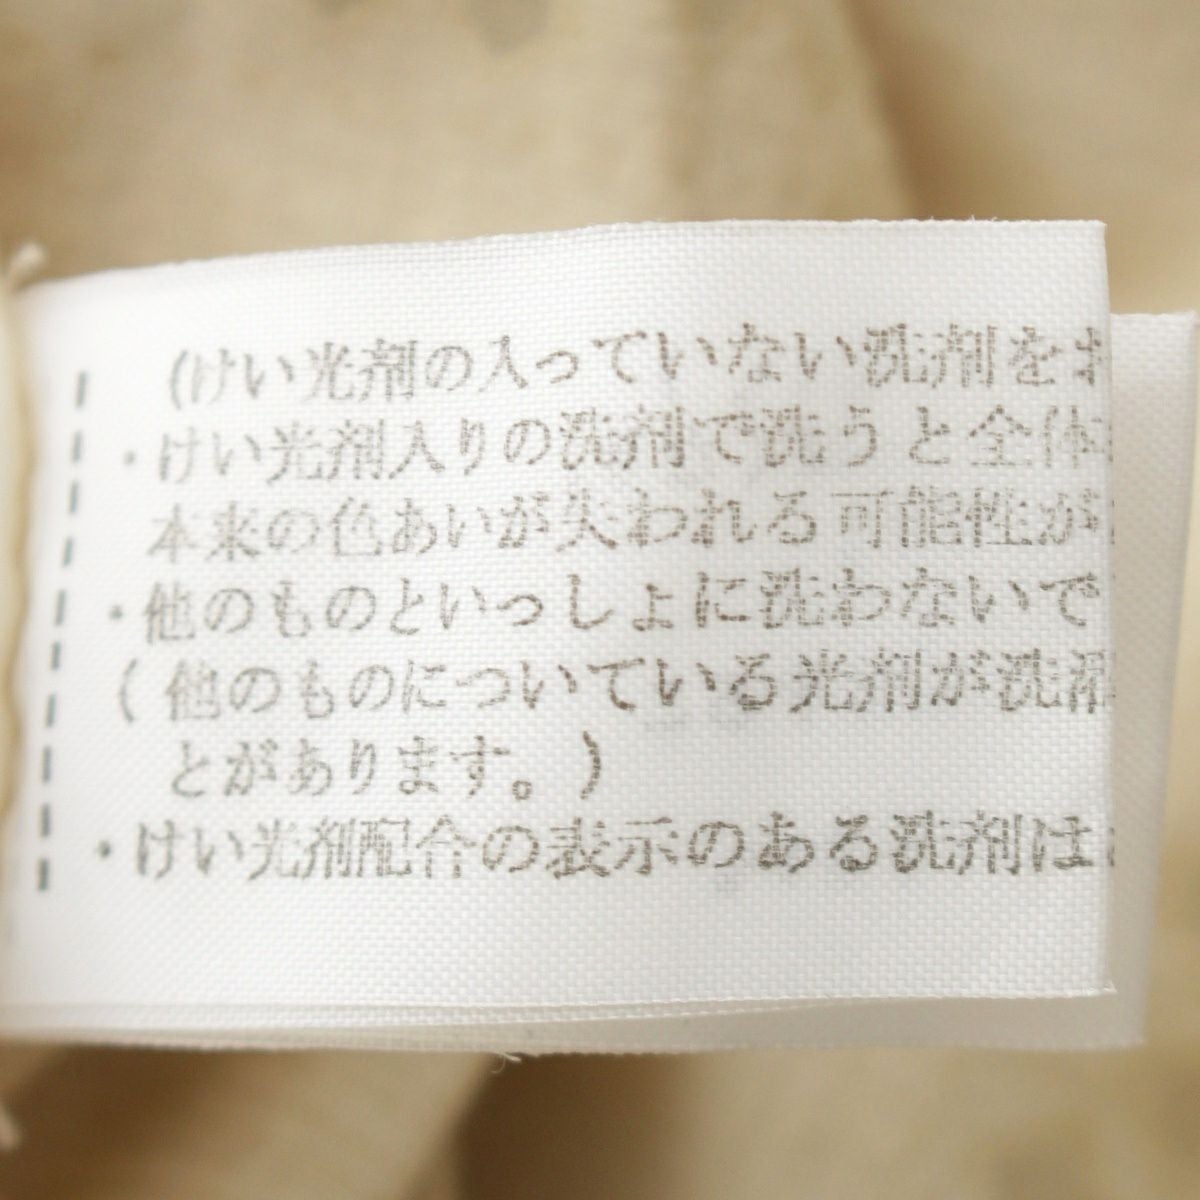 (けい光剤の入っていない洗剤をお
・けい光剤入りの洗剤で洗うと全体
本来の色あいが失われる可能性が
・他のものといっしょに洗わないで
(他のものについている光剤が洗濯
とがあります。)
・けい光剤配合の表示のある洗剤は